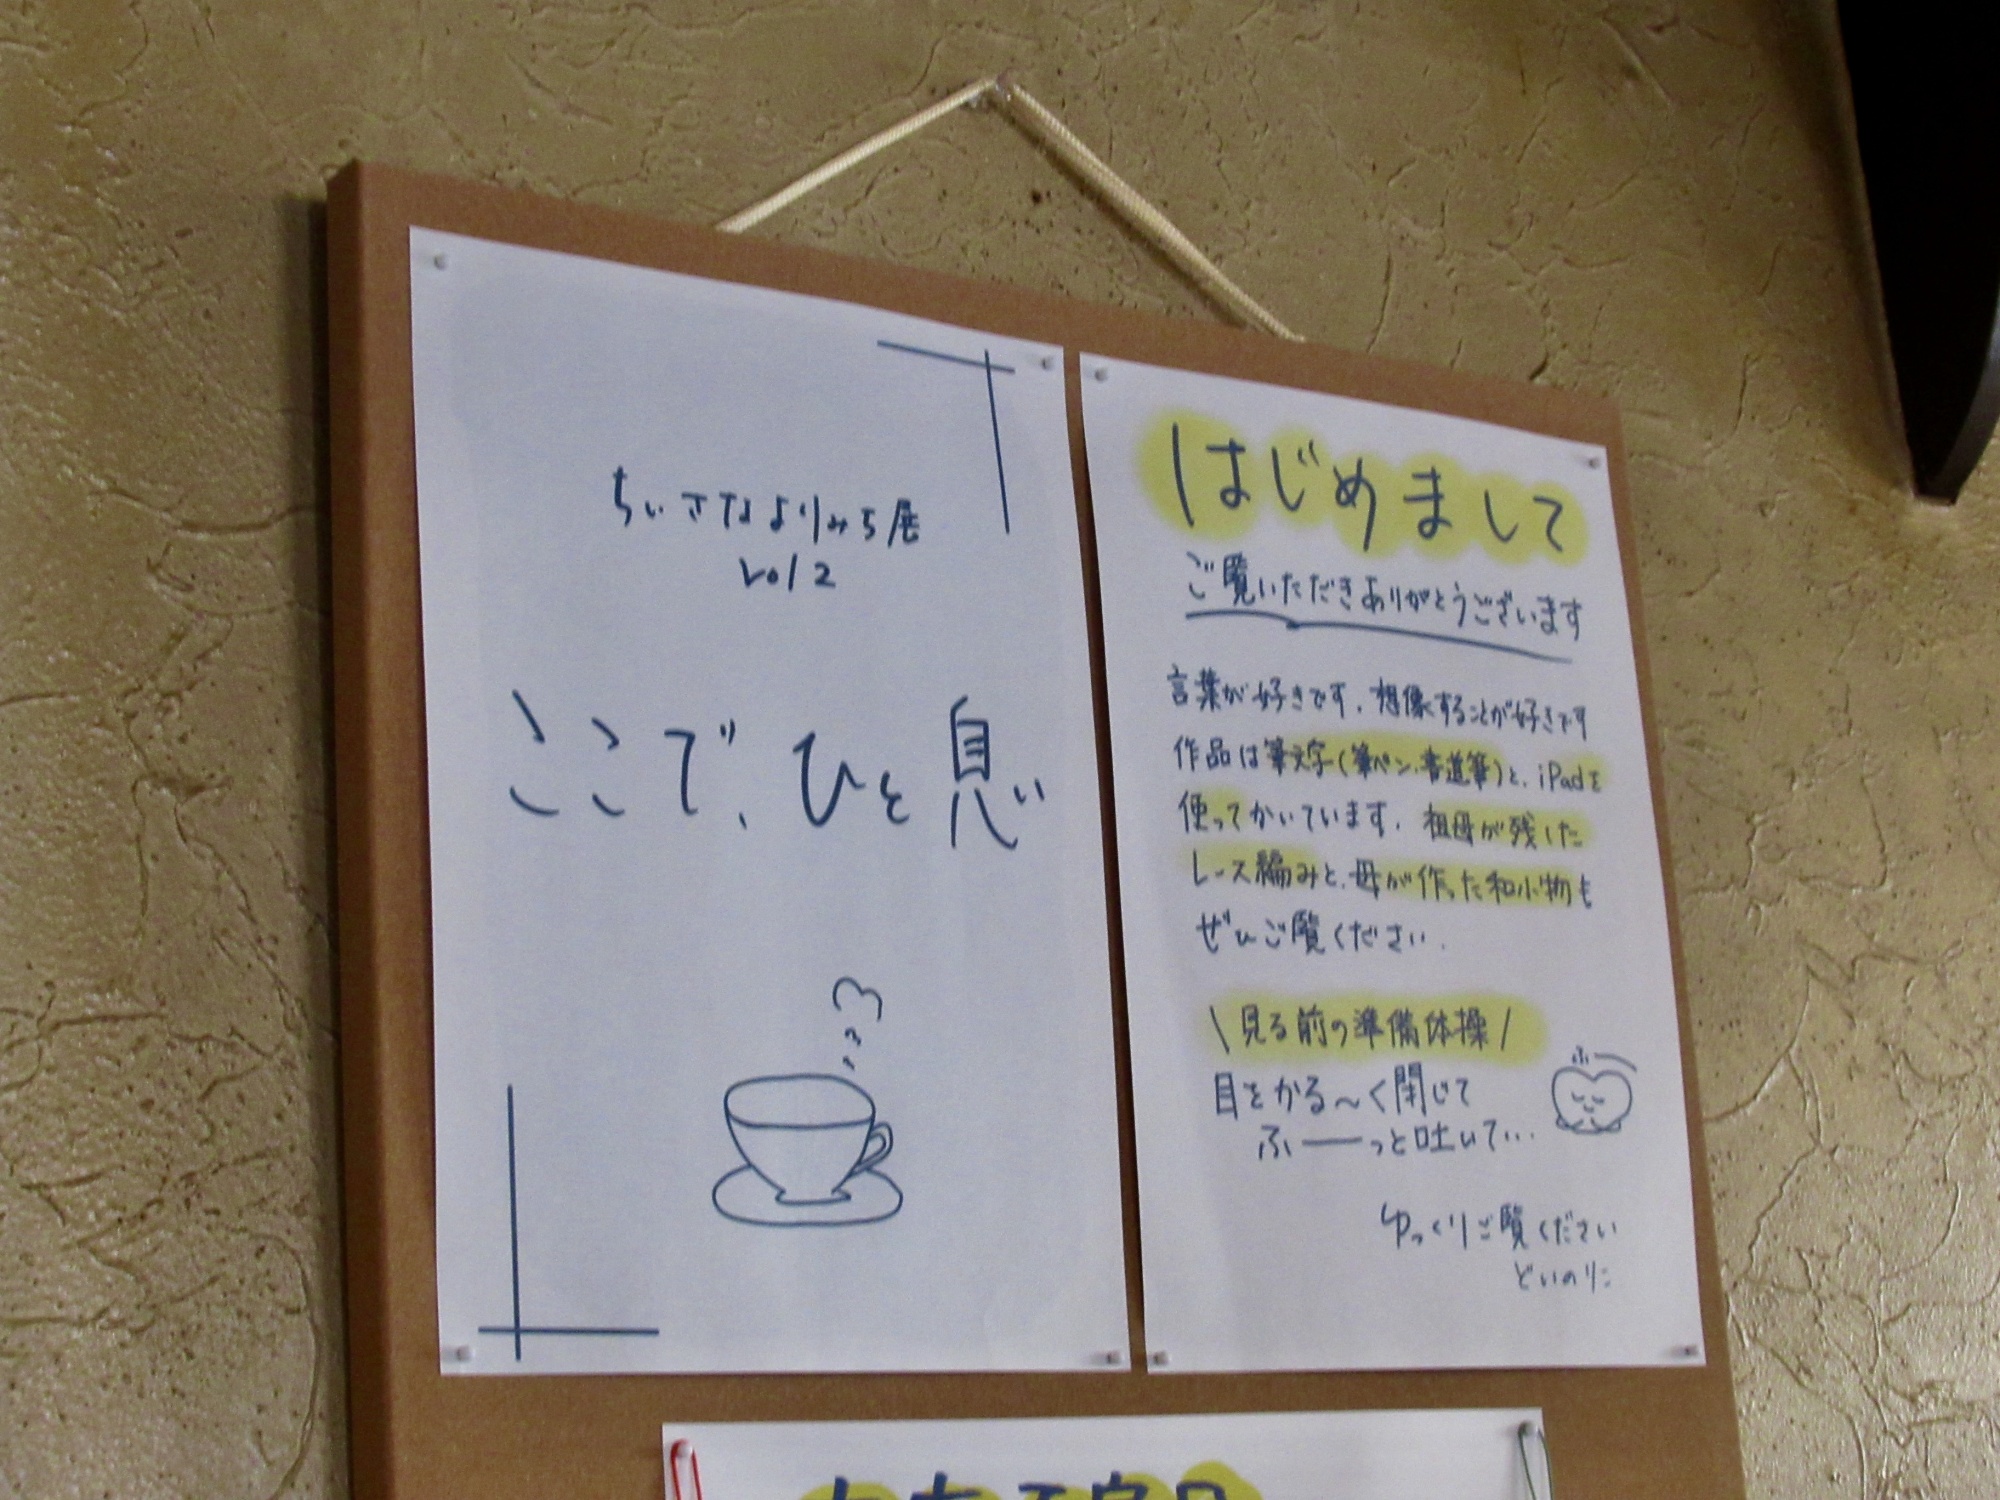 ちいさなよりみち展
vol 2
ここで、ひと息
はじめまして
ご覧いただきありがとうございます
言葉が好きです。想像することが好きです
作品は筆文字(筆ペン、書道筆)と、iPadを
使ってかいています。祖母が残した
レース編みと、母が作った和小物も
ぜひご覧ください。
\見る前の準備体操/
目をかる〜く閉じて
ふーーっと吐いて...
ふー
ゆっくりご覧ください
どいのりこ